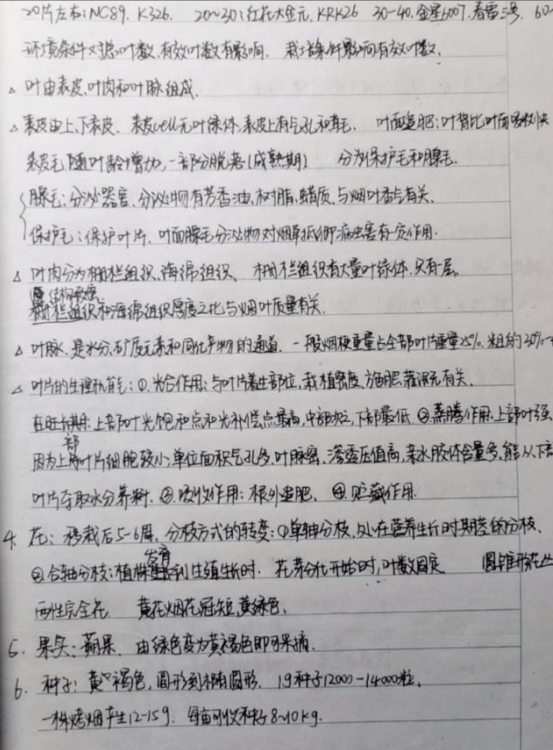 20片左右:NC89、K326. 20~30:红花大金元、KRK26 30-40.金星6007、春雷三号. 60-
环境条件对总叶数、有效叶数有影响. 栽培条件影响有效叶数.
△ 叶由表皮、叶肉和叶脉组成.
△ 表皮由上、下表皮. 表皮cell无叶绿体.表皮上有气孔和茸毛. 叶面追肥:叶背比叶面吸收
表皮毛随叶龄增加,一部分脱落(成熟期) 分为保护毛和腺毛.
腺毛:分泌器官,分泌物有芳香油,树脂,蜡质.与烟叶香气有关.
保护毛:保护叶片.叶面腺毛分泌物对烟草抵御病虫害有一定作用.
△ 叶肉分为栅栏组织、海绵组织、 栅栏组织有大量叶绿体.只有一层.
结构紧密
栅栏组织和海绵组织厚度之比与烟叶质量有关.
△ 叶脉.是水分、矿质元素和同化产物的通道. 一般烟梗重量占全部叶片重量25%.粗的30%
△ 叶片的生理机能:①.光合作用:与叶片着生部位,栽植密度,施肥,灌溉有关.
上部叶光饱和点和光补偿点最高,中部次之,下部最低 ②蒸腾作用.上部叶强
因为上部叶片细胞较小,单位面积气孔多.叶脉密.渗透压值高,亲水胶体含量多,能从下
叶片夺取水分养料. ③.吸收作用:根外追肥. ④.贮藏作用.
4. 花:移栽后5-6周.分枝方式的转变:①单轴分枝.处在营养生长时期茎的分枝.
②合轴分枝:植株发育到生殖生长时. 花芽分化开始时,叶数固定 圆锥形花
两性完全花. 黄花烟花冠短,黄绿色.
5. 果实:蒴果. 由绿色变为黄褐色即可采摘.
6. 种子:黄褐色,圆形到椭圆形. 1g种子12000-14000粒.
一株烤烟产生12-15g. 每亩可收种子8~10kg.